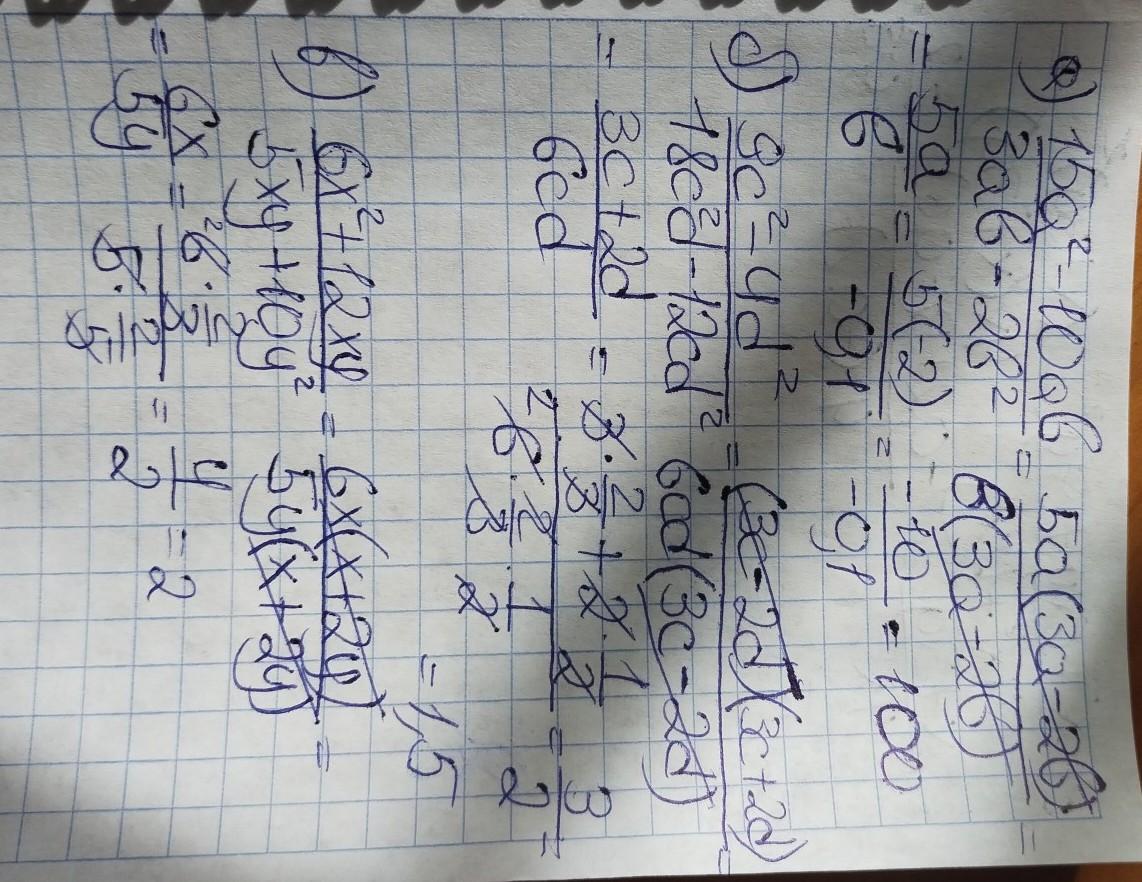 а) (15a² - 10aб)/(3aб - 2б²) = (5a(3a-2б))/(б(3a-2б)) =
= 5a/б = 5(-2)/(-0,1) = -10/(-0,1) = 100
б) (9c² - 4d²)/(18c²d - 12cd²) = ((3c-2d)(3c+2d))/(6cd(3c-2d)) =
= (3c+2d)/(6cd) = (3·2/3 + 2·1/2)/(6·2/3·1/2) = 3/2 =
= 1,5
в) (6x² + 12xy)/(5xy + 10y²) = (6x(x+2y))/(5y(x+2y)) =
= 6x/5y = (6·2/3)/(5·2/5) = 4/2 = 2